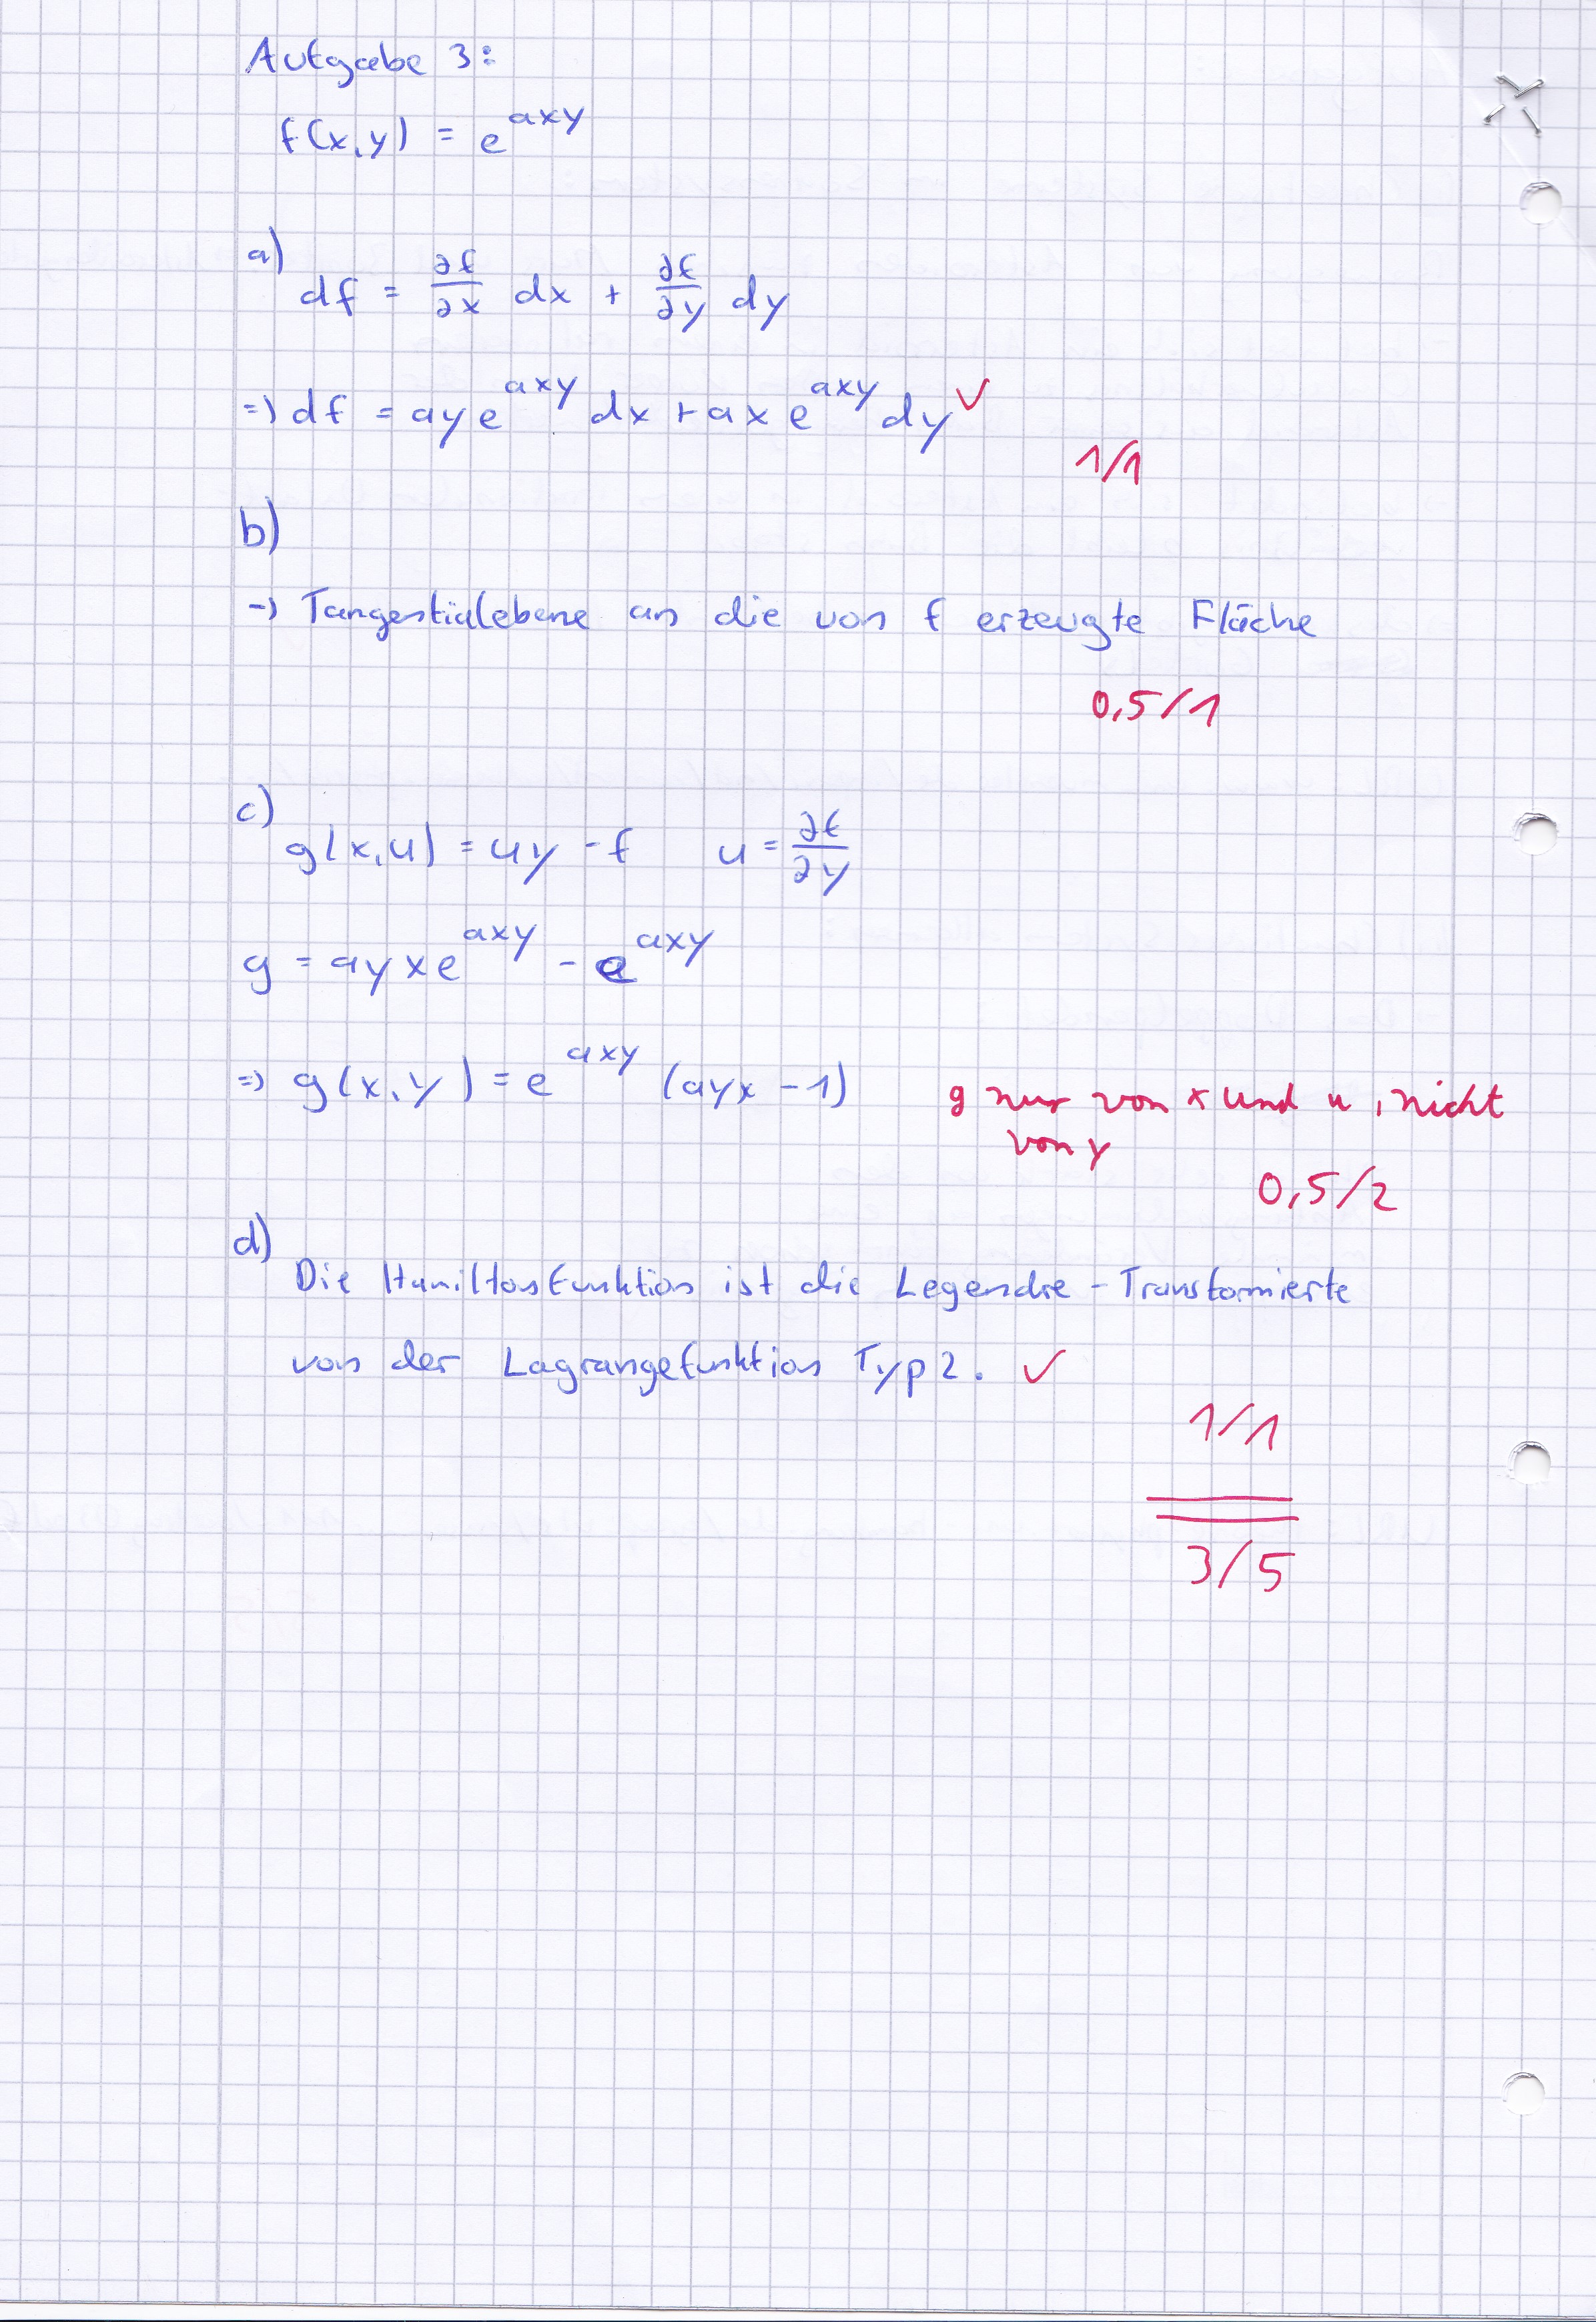 Aufgabe 3:
f(x,y) = e^{axy}
a)
df = ∂f/∂x dx + ∂f/∂y dy
=> df = aye^{axy} dx + axe^{axy} dy ✓
1/1
b)
-> Tangentialebene an die von f erzeugte Fläche
0,5/1
c)
g(x,u) = uy - f u = ∂f/∂y
g = ayxe^{axy} - e^{axy}
=> g(x,y) = e^{axy} (ayx - 1)
g nur von x und u, nicht
von y
0,5/2
d)
Die Hamiltonfunktion ist die Legendre-Transformierte
von der Lagrangefunktion Typ 2. ✓
1/1
3/5